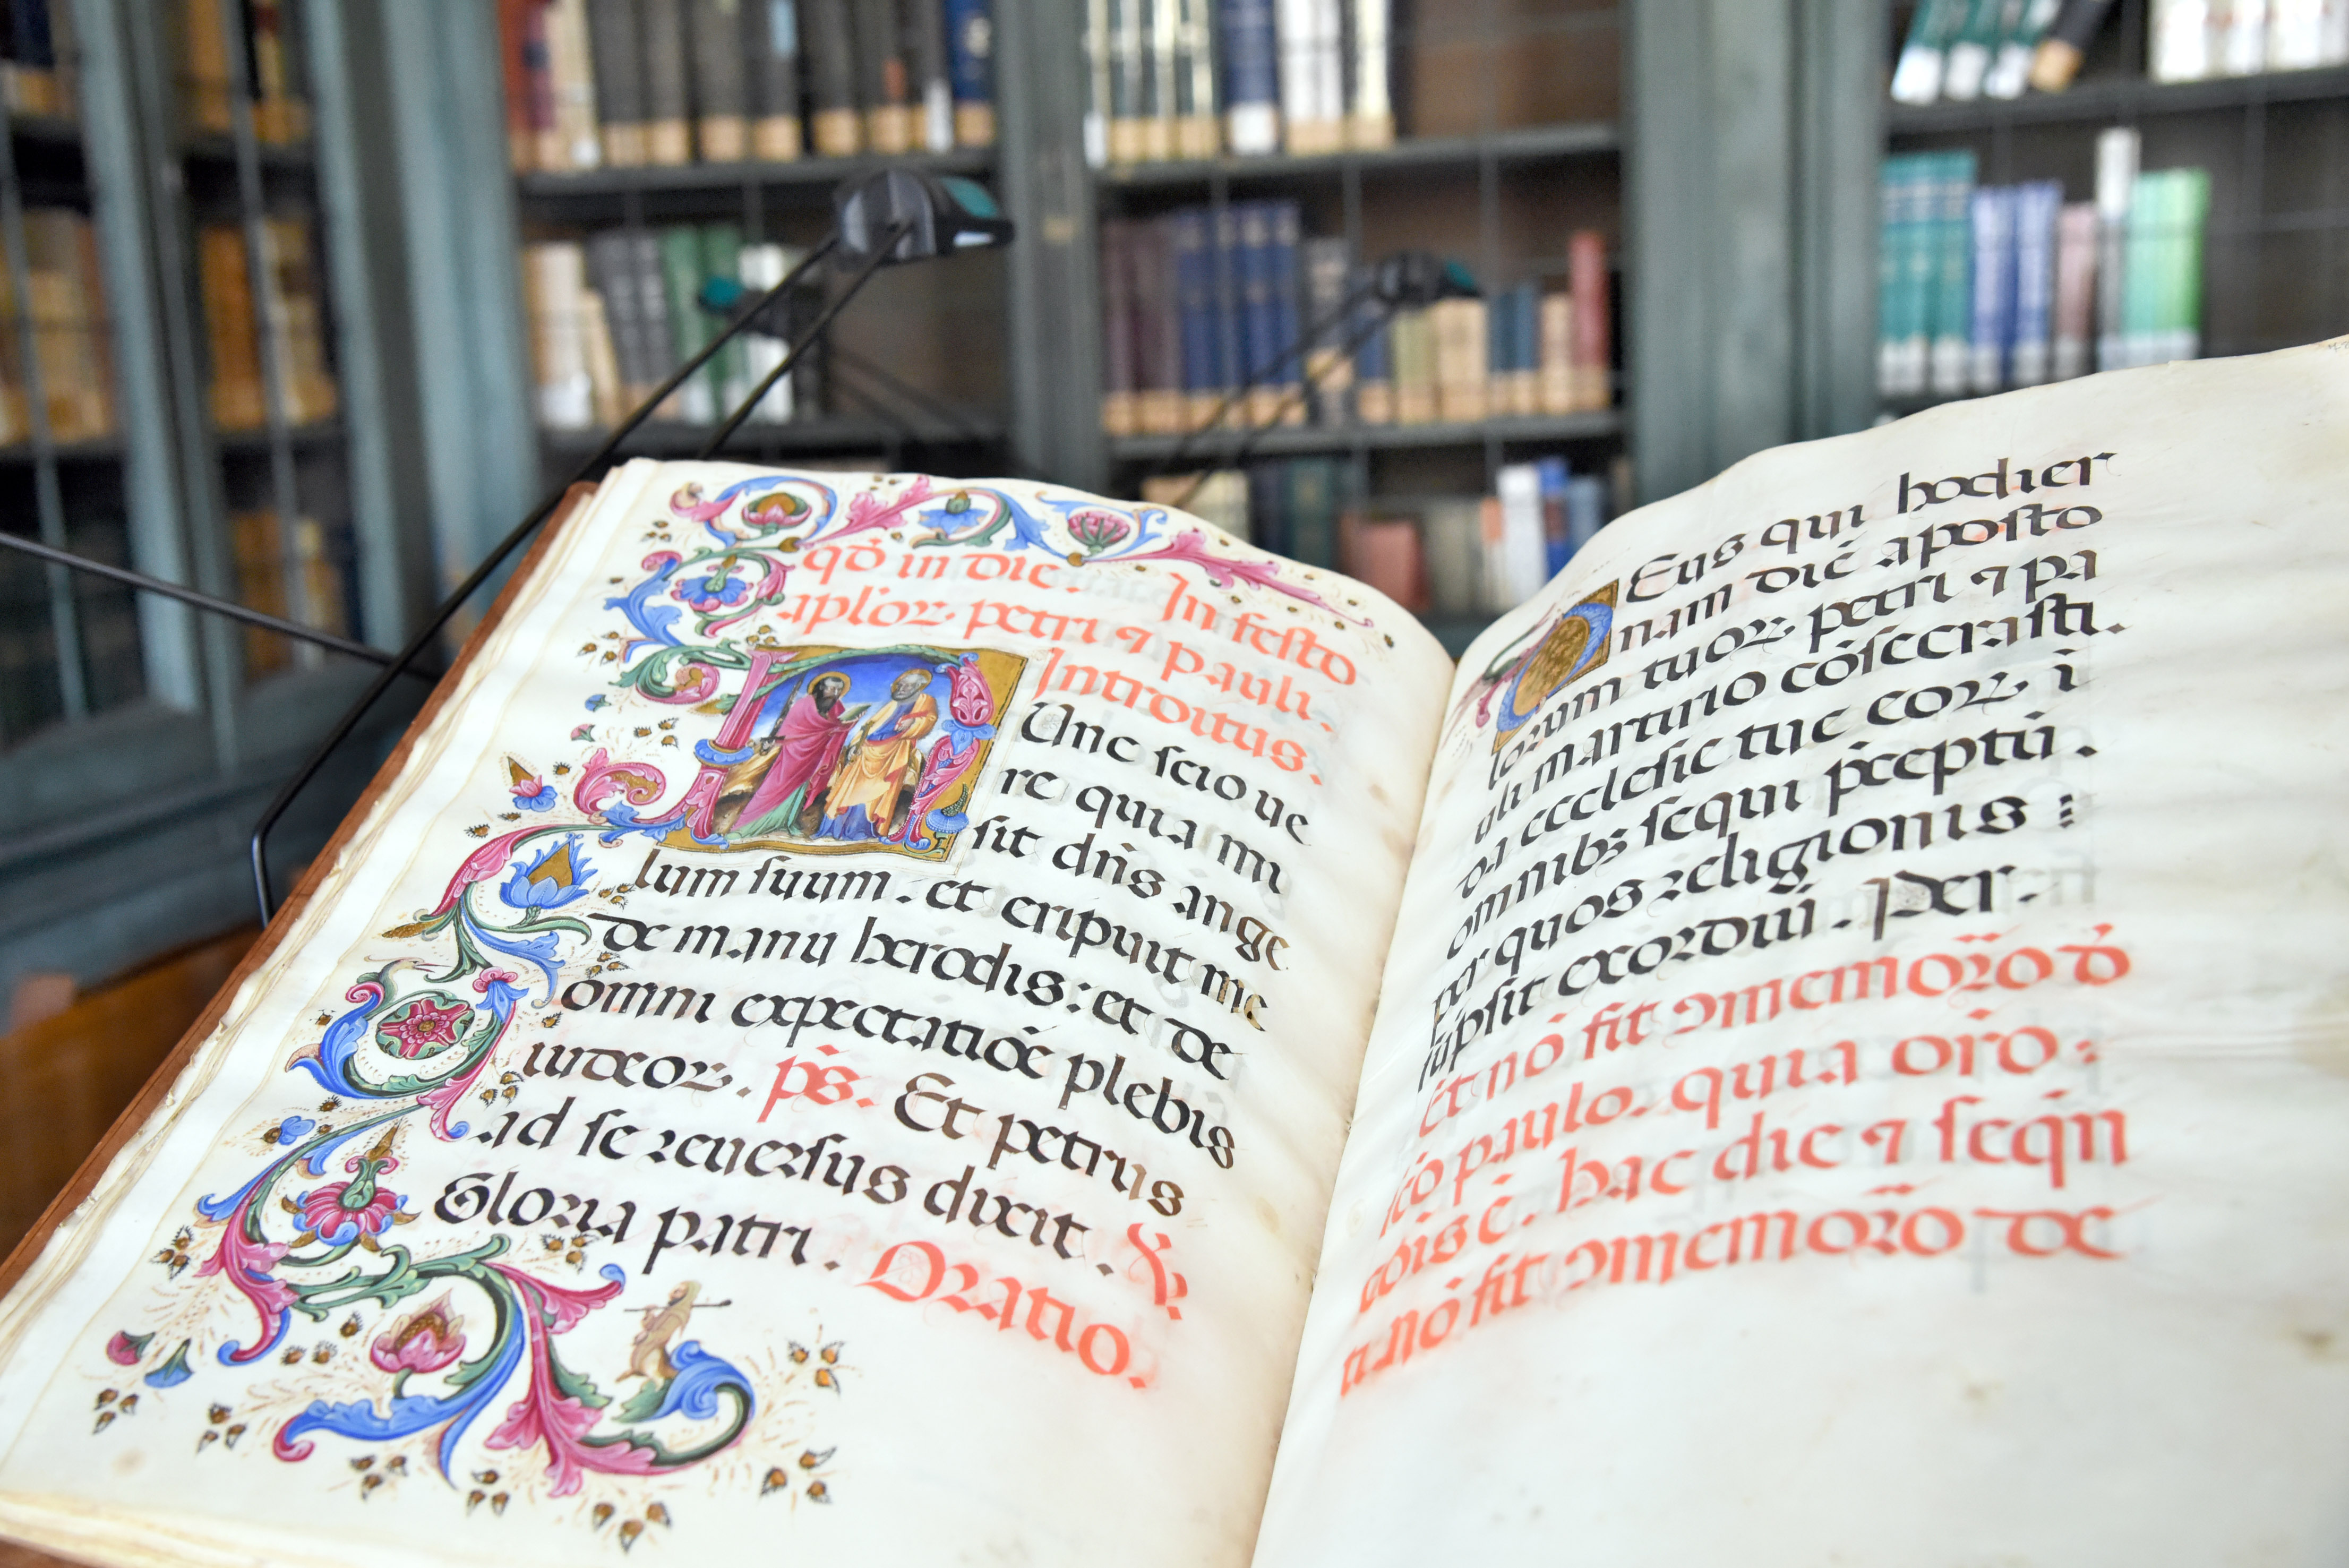 qđ in die. In festo
aploꝝ petri ⁊ pauli.
Introitus.
Unc scio ue
re quia mi
sit dn̄s ange
lum suum. et eripuit me
de manu herodis: et de
omni expectatiōe plebis
iudeoꝝ. ps̄. Et petrus
ad se reuersus dixit.
Gloria patri. Oratio.
Eus qui hodier
nam diē aposto
lorum tuoꝝ petri ⁊ pa
uli martirio cōsecrasti.
da ecclesie tue eoꝝ i
omnibꝫ sequi p̄ceptū.
per quos religionis
sūpsit exordiū. Per.
Et nō fit ꝯmemorō đ
scō paulo. quia orō
hac die ⁊ seqn̄
ti nō fit ꝯmemorō de